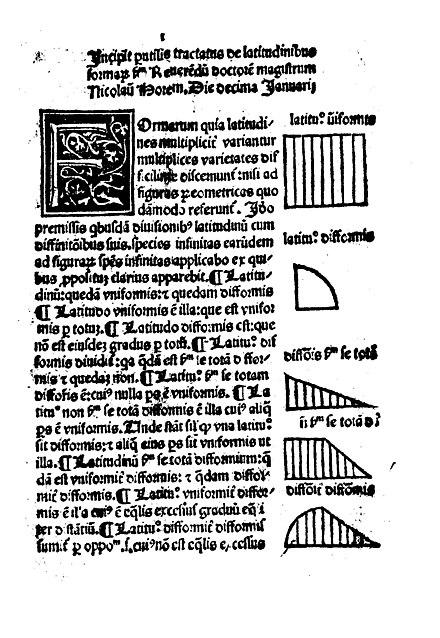 Incipit perutilis tractatus de latitudinibus
formarum secundum Reuerendū doctorē magistrum
Nicolaū Horem. Die decima Januarij
Formarum quia latitudi⸗
nes multiplicit variantur
multiplices varietates dif
ficilime discernunt: nisi ad
figuras geometricas quo
dāmodo referunt. Ideo
premissis qbusdā diuisionib⁹ latitudinū cum
diffinitōibus suis. species infinitas earūdem
ad figurarū spēs infinitas applicabo ex qui⸗
bus ppositū clarius apparebit. ¶ Latitu⸗
dinū: quedā vniformis: ⁊ quedam difformis
¶ Latitudo vniformis ē illa: que est vnifor
mis p totū. ¶ Latitudo difformis est: que
nō est eiusdē gradus p totū. ¶ Latitu. dif
formis diuidit: qa qdā est se totā diffor⸗
mis ⁊ quedā nōn. ¶ Latitu. se totam
difforīs ē: cui⁹ nulla ps ē vniformis. ¶ La
titu. non se totā difformis ē illa cui⁹ aliq
ps ē vniformis. Unde stat qp vna latitu.
sit difformis: ⁊ aliq eius ps sit vniformis vt
illa. ¶ Latitudinū se totā difformium: q
dā est vniformit difformis: ⁊ qdam diffor⸗
mit difformis. ¶ Latitu. vniformit diffor⸗
mis ē illa cui⁹ ē eqlis excessus graduū eq i
ter distātiū. ¶ Latitu. difformit difformis
sumit oppo. cui⁹ nō est eqlis excessus
latitu. vniformis
latitu. difformis
difforīs se totā
nō se totā
difforīt difformis